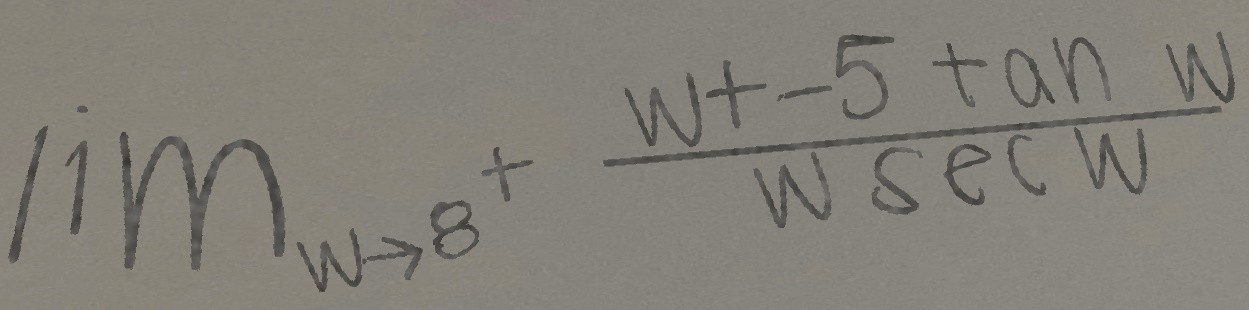 \lim_{w \to 8^+} \frac{w + -5 \tan w}{w \sec w}